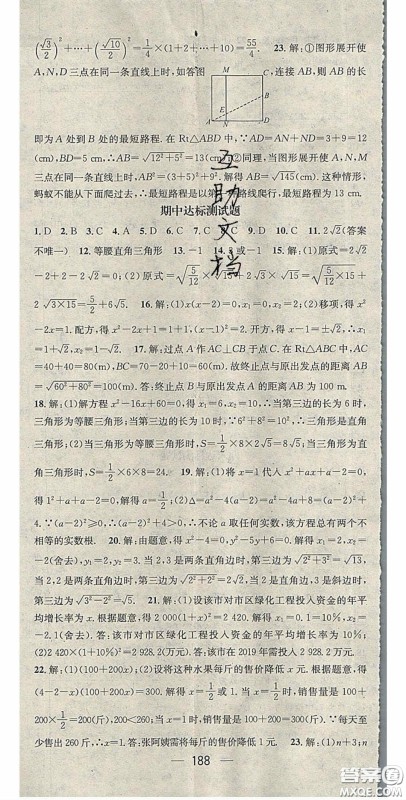 (√3/2)²+…+(√10/2)²=1/4×(1+2+…+10)=55/4. 23.解:①图形展开使
A,N,D三点在同一条直线上时,如答图 ,连接AB,则AB的长
M C
D
A B
N
即为A处到B处的最短路程.在Rt△ABD中,∵AD=AN+ND=3+9=12
(cm),BD=5 cm,∴AB=√(12²+5²)=13(cm).②同理,当图形展开使A,N,M
三点在同一条直线上时,AB=√145(cm).∵这种情形,
蚂蚁不能从下面爬过去,∴最短路程是以第 路线爬行,最短路程为13 cm.
期中达标测试题
1.D 2.B 3.C 4.A 5.C 6.D 7.C 8.A 9.D 10.D 11.2(答案
不唯一) 12.等腰直角三角形 14.3或-1 15.解:(1)原式=2√2
-2+2-√2=√2.(2)原式=
2√(3×15)=√5/2+6√5. 16.解:(1)(x-2)(x-0)=0,
x₁=0,x₂=2;(2)移项,得
x²-2x=1,配方,得x²-2x+1=1+1,∴(x-1)²=2,开方,得x-1=±√2,∴x₁
=1+√2,x₂=1-√2. 17.解:过点A作AC⊥CB于点C.在Rt△ABC中,AC
=40+40=80(m),BC=70-20+10=60(m).故终止点与原出发点的距离AB
=√(60²+80²)=100(m).答:终止点B与原出发点A的距离AB为100 m.
18.解:(1)解方程x²-16x+60=0,得x₁=10,x₂=6.∴当第三边的长为6时,
三角形为等腰三角形;当第三边的长为10时,∵6²+8²=10²,∴三角形为直角
三角形;(2)当三角形为等腰三角形时,
角三角形时,S=1/2×6×8=24. 19.解:(1)将x=1代入x²+ax+a-2=0,得
1²+a+a-2=0,解得a=1/2;(2)△=a²-4(a-2)=a²-4a+8=(a-2)²+
4,∵(a-2)²≥0,∴(a-2)²+4>0,∴不论a取任何实数,该方程总有两个不
相等的实数根. 20.解:由题意,得x²-4=0,y²-5y+6=0,解得x₁=2,x₂=
-2(舍去),y₁=2,y₂=3.当2,3是两条直角边时,第三边长为√(2²+3²)=√13,
当2,2两条直角边时,第三边长为√(2²+2²)=2√2,当3为斜边时,第三边长
为√(3²-2²)=√5. 21.解:(1)设该市对市区绿化工程投入资金的年平均增长
率为x.根据题意,得2 000(1+x)²=2 420,解得x₁=0.1,x₂=-2.1(舍去),0.1
=10%.答:该市对市区绿化工程投入资金的年平均增长率为10%;(2)
2 420×(1+10%)²=2 928.2(万元).答:该市在2019年需投入2 928.2万元.
22.解:(1)(100+200x);(2)设将这种水果每斤的售价降低x元.根据题意,得
(4-2-x)(100+200x)=300,解得x₁=1/2,x₂=1.当x=1/2时,销售量是100+
200×1/2=200<260;当x=1时,销售量是100+200=300>260.∵每天至
少售出260斤,∴x=1.答:张阿姨需将每斤的售价降低1元. 23.解:(1)n+3;n
188
互助文档
答案圈
MXQE.COM